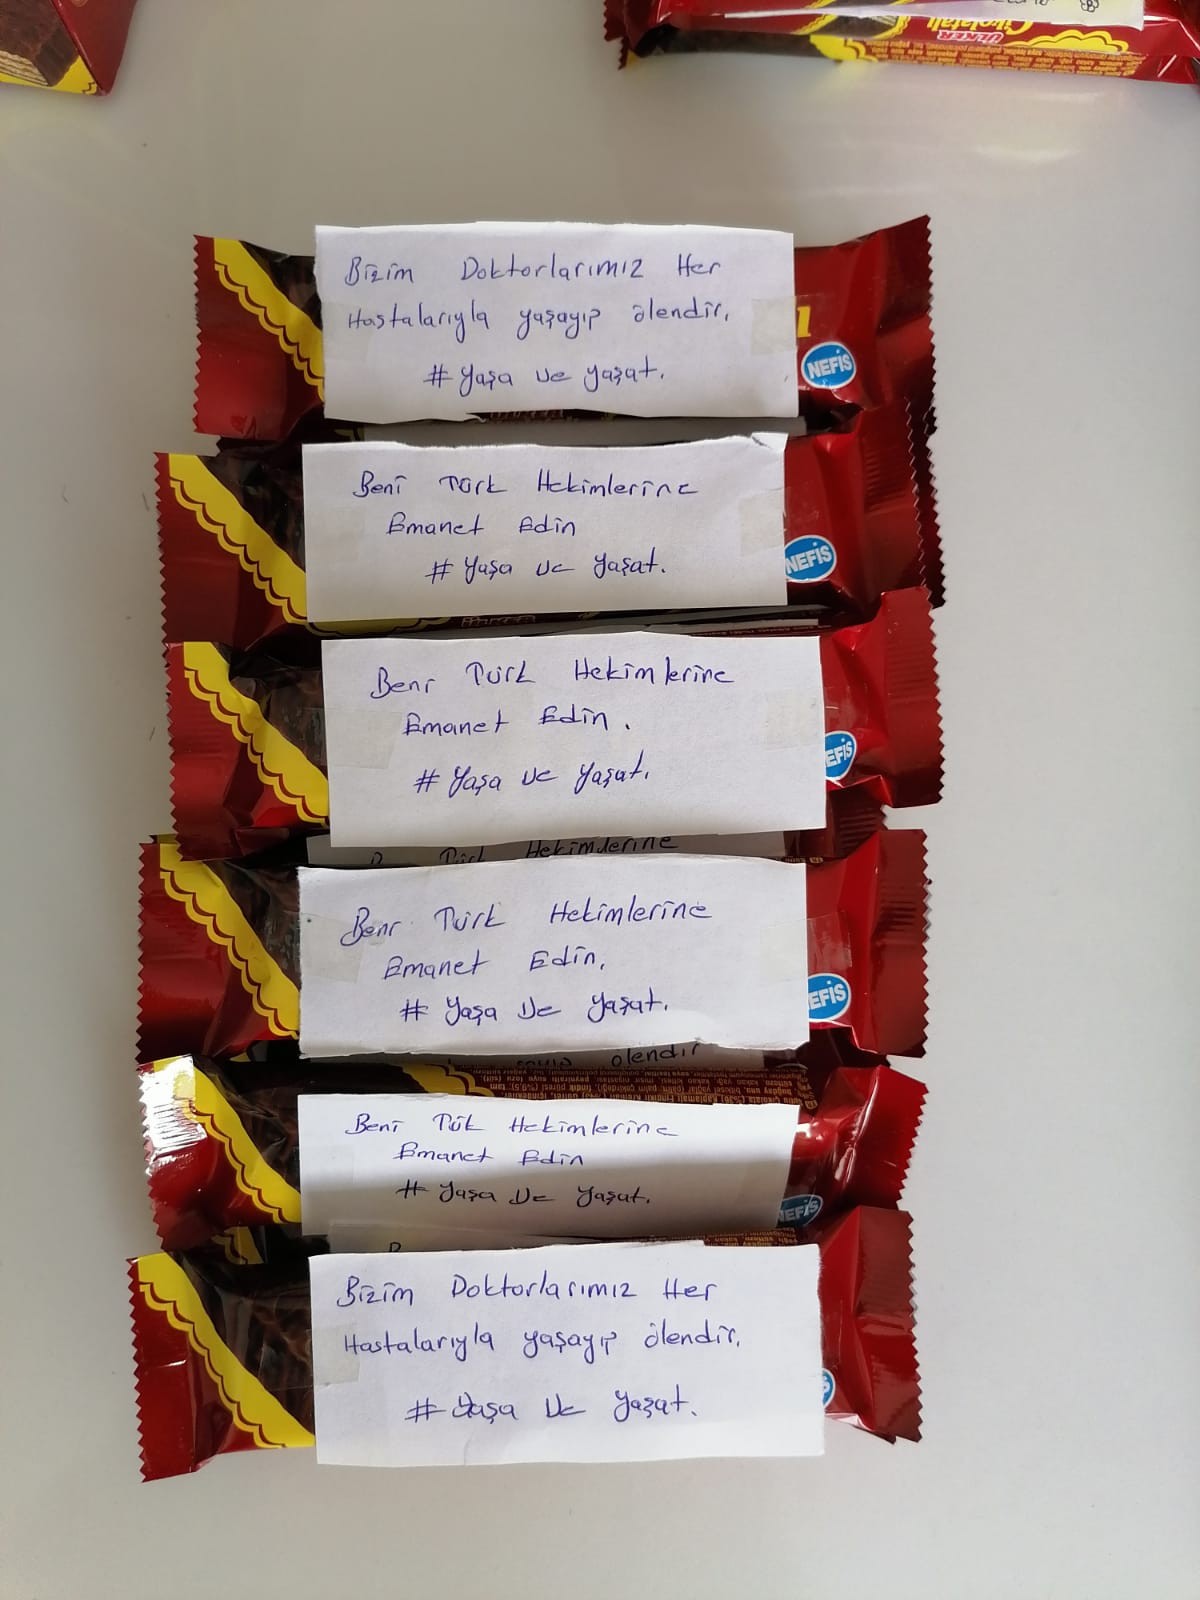 ÜLKER
Çikolatalı
Bizim Doktorlarımız Her
Hastalarıyla yaşayıp ölendir.
# Yaşa ve yaşat.
NEFİS
Beni Türk Hekimlerine
Emanet Edin
# Yaşa ve Yaşat.
NEFİS
ÜLKER
Beni Türk Hekimlerine
Emanet Edin.
# Yaşa ve Yaşat.
EFİS
Türk Hekimlerine
Beni Türk Hekimlerine
Emanet Edin.
# Yaşa Ve Yaşat.
EFİS
ölendir
Beni Tük Hekimlerine
Emanet Edin
# Yaşa Ve Yaşat.
NEFİS
Bizim Doktorlarımız Her
Hastalarıyla yaşayıp ölendir.
# Yaşa Ve Yaşat.